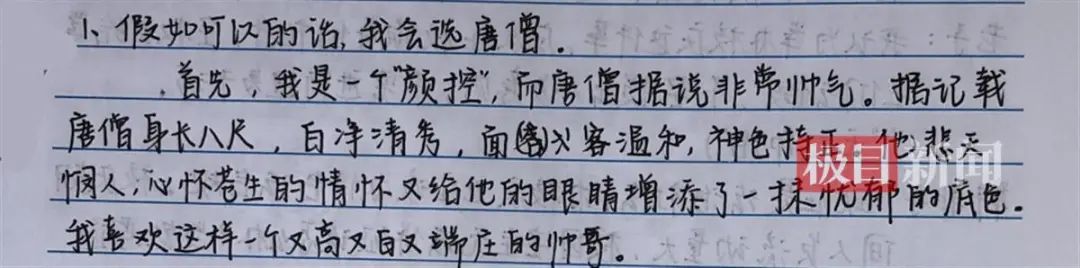 1、假如可以的话，我会选唐僧。
首先，我是一个"颜控"，而唐僧据说非常帅气。据记载
唐僧身长八尺，白净清秀，面容温和，神色持正。他悲天
悯人，心怀苍生的情怀又给他的眼睛增添了一抹忧郁的底色。
我喜欢这样一个又高又白又端庄的帅哥。
极目新闻